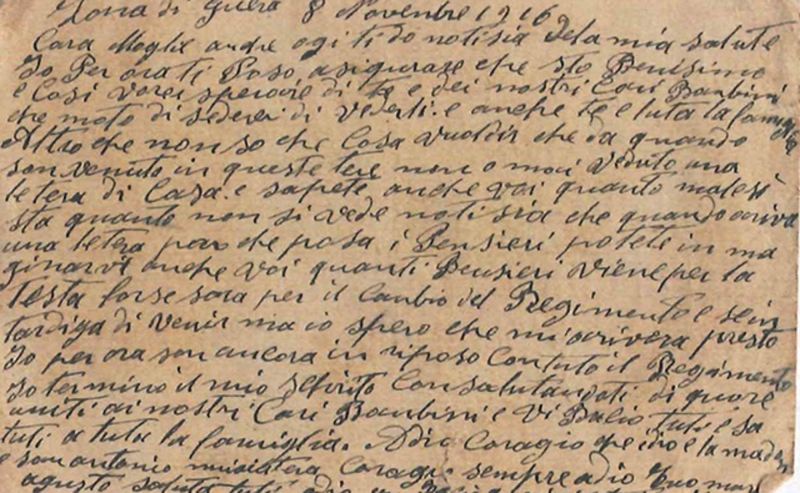 Zona di guera 8 Novenbre 1916
Cara Moglie anche ogi ti do notisia dela mia salute
Io Per ora ti Poso asigurare che sto Benisimo
e Cosi vorei sperare di te e dei nostri Cari Banbini
che moto di sedera di Vederli. e anche te e tuta la famiglia
Altro che non so che Cosa vuoldir che da quando
son venuto in queste tere non o mai Veduto una
letera di Casa. e sapete anche voi quanto male si
sta quanto non si vede notisia che quando ariva
una letera par che pasa i Pensieri potete in ma
ginarvi anche voi quanti Pensieri viene per la
testa forse sara per il Canbio del Regimento e se in
tardiga di venir ma io spero che mi scrivera presto
Io per ora son ancora in riposo Con tuto il Regimento
Io termino il mio scrito Con salutandoti di quore
uniti ai nostri Cari Banbini e Vi Bacio tuti e sa
tuti a tuta la famiglia. Adio Coragio che idio e la madon
e san antonio Coragio sempre adio tuo mar
agusto saluta tuti adio